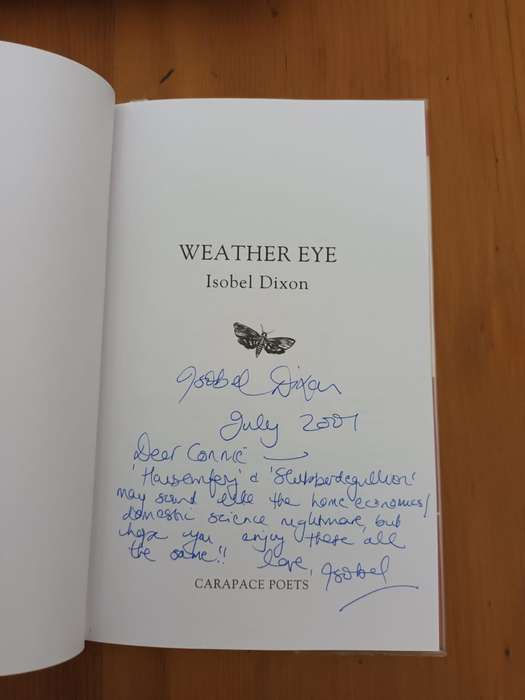 WEATHER EYE
Isobel Dixon
Isobel Dixon
July 2001
Dear Connie —
& 'Slubberdegullion'
may sound like the home economics/
domestic science nightmare, but
hope you enjoy these all
the same!! love, Isobel
CARAPACE POETS